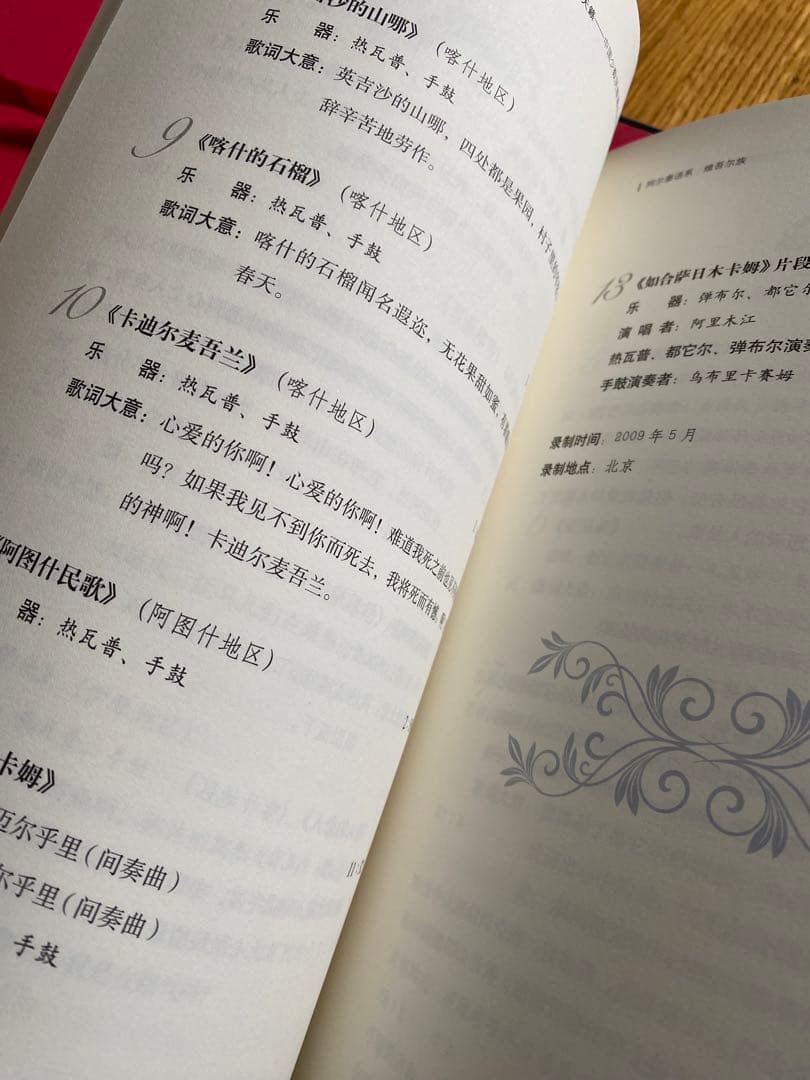 沙的山哪》（喀什地区）
乐 器：热瓦普、手鼓
歌词大意：英吉沙的山哪，四处都是果园，村子里的
辞辛苦地劳作。
9 《喀什的石榴》（喀什地区）
乐 器：热瓦普、手鼓
歌词大意：喀什的石榴闻名遐迩，无花果甜如蜜，
春天。
10 《卡迪尔麦吾兰》（喀什地区）
乐 器：热瓦普、手鼓
歌词大意：心爱的你啊！心爱的你啊！难道我死之前也
吗？如果我见不到你而死去，我将死而有憾，
的神啊！卡迪尔麦吾兰。
《阿图什民歌》（阿图什地区）
器：热瓦普、手鼓
卡姆》
迈尔乎里（间奏曲）
尔乎里（间奏曲）
手鼓
阿尔泰语系 维吾尔族
13 《如合萨日木卡姆》片段
乐 器：弹布尔、都它尔
演 唱 者：阿里木江
热瓦普、都它尔、弹布尔演奏
手鼓演奏者：乌布里卡赛姆
录制时间：2009 年 5 月
录制地点：北京